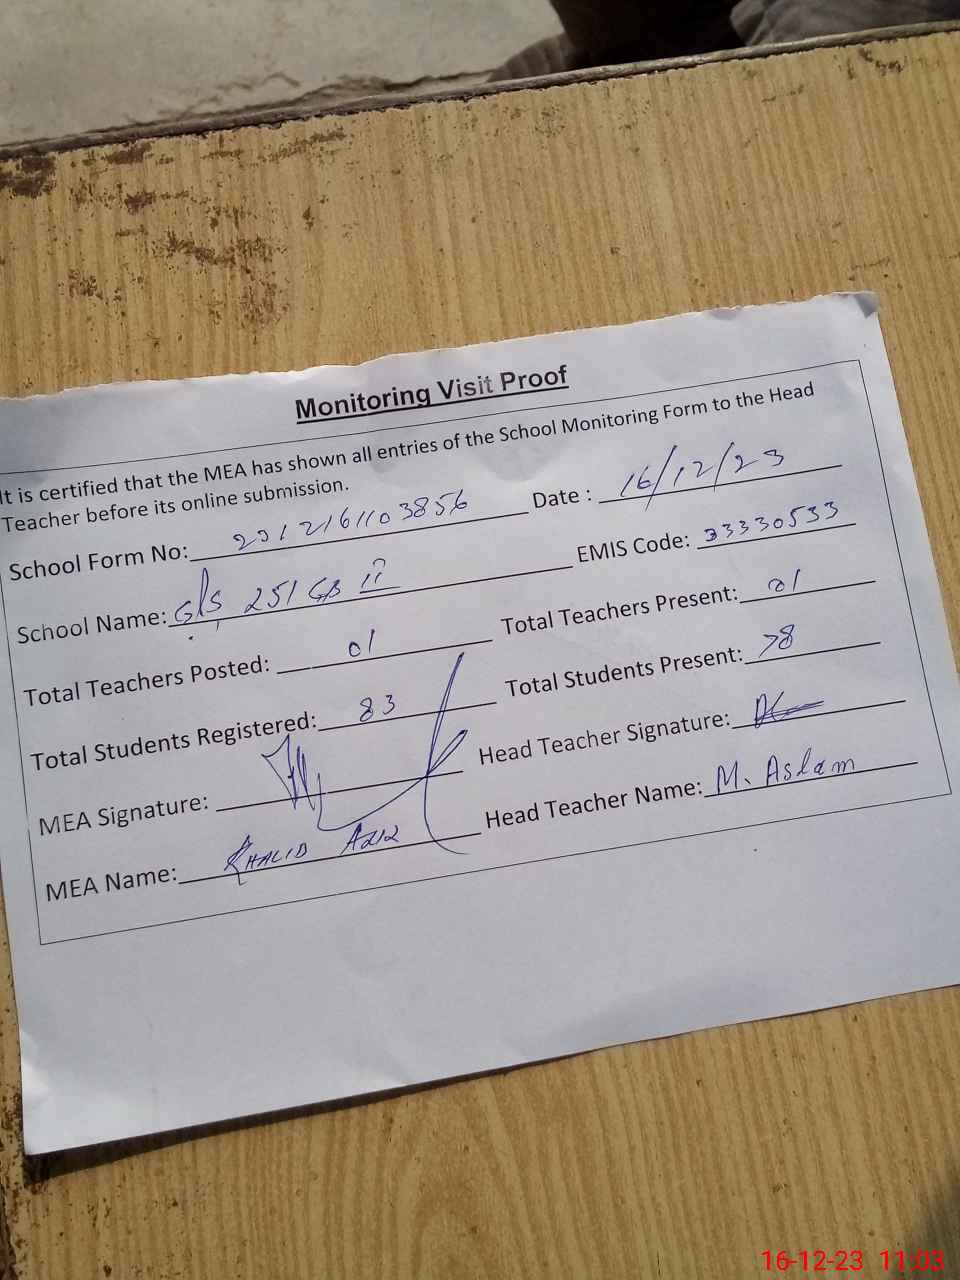 Monitoring Visit Proof
It is certified that the MEA has shown all entries of the School Monitoring Form to the Head
Teacher before its online submission.
School Form No: 2312161103856 Date : 16/12/23
School Name: GPS 251 GB II EMIS Code: 33330533
Total Teachers Posted: 01 Total Teachers Present: 01
Total Students Registered: 83 Total Students Present: 78
MEA Signature: Head Teacher Signature:
MEA Name: KHALID AZIZ Head Teacher Name: M. Aslam
16-12-23 11:03